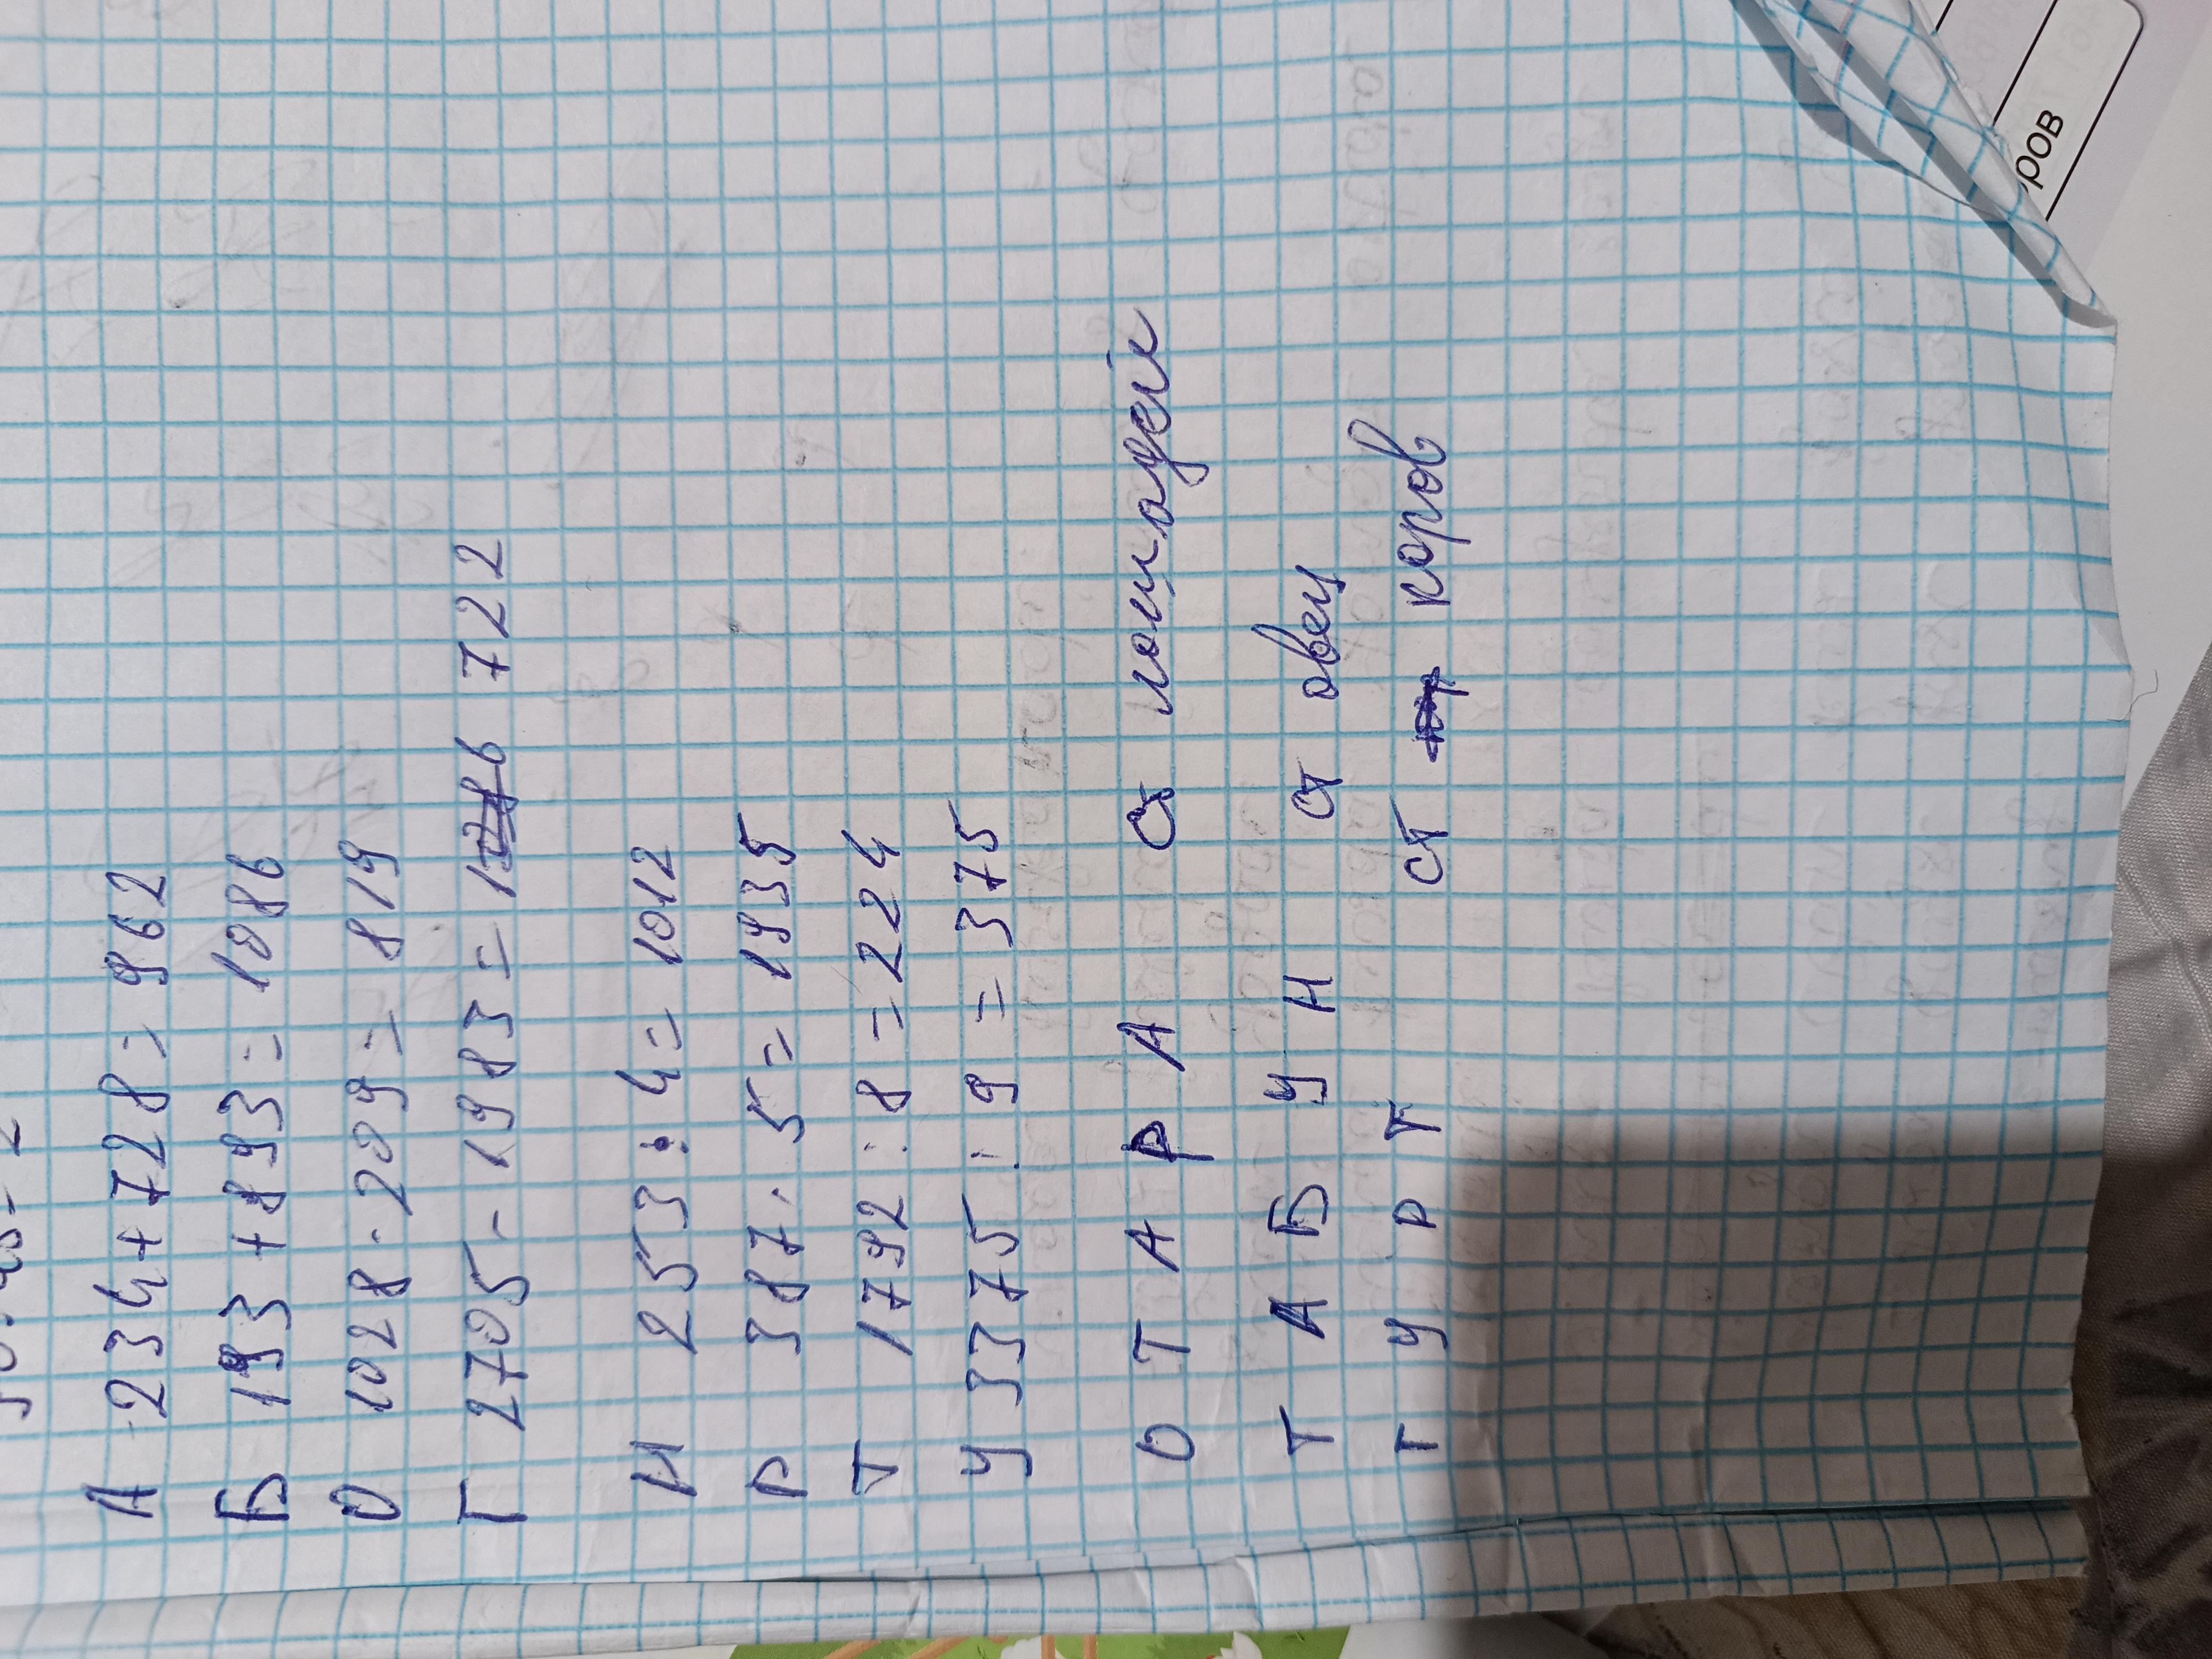 А 234+728= 962
Б 193+893= 1086
О 1028-209= 819
Г 2705-1983= 722
Н 253:4= 1012
Р 387·5= 1935
Т 1792:8=224
У 3375:9=375
О Т А Р А Ст лошадей
Т А Б У Н ст овец
Т У Р Т ст коров
ров